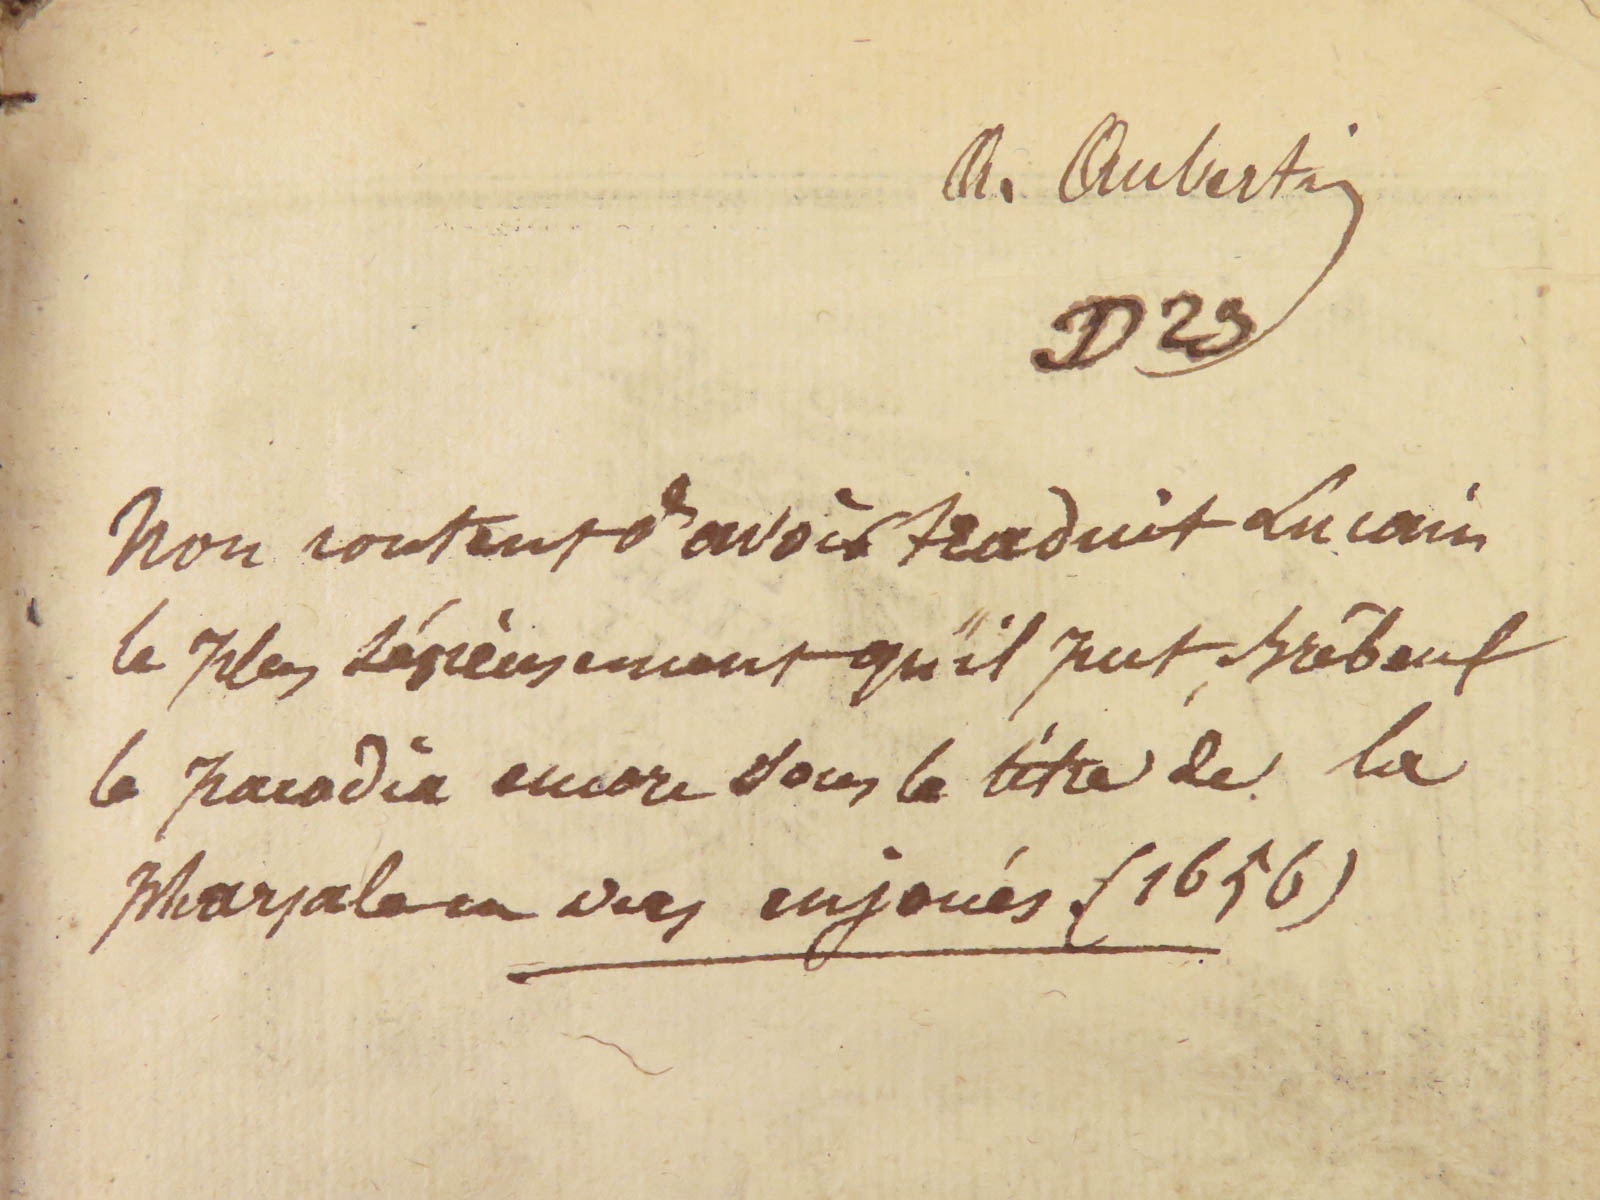 A. Aubertin
D 23
Non content d'avoir traduit Lucain
le plus sérieusement qu'il put, Brébeuf
le parodia encore sous le titre de la
Pharsale en vers enjoués (1656)